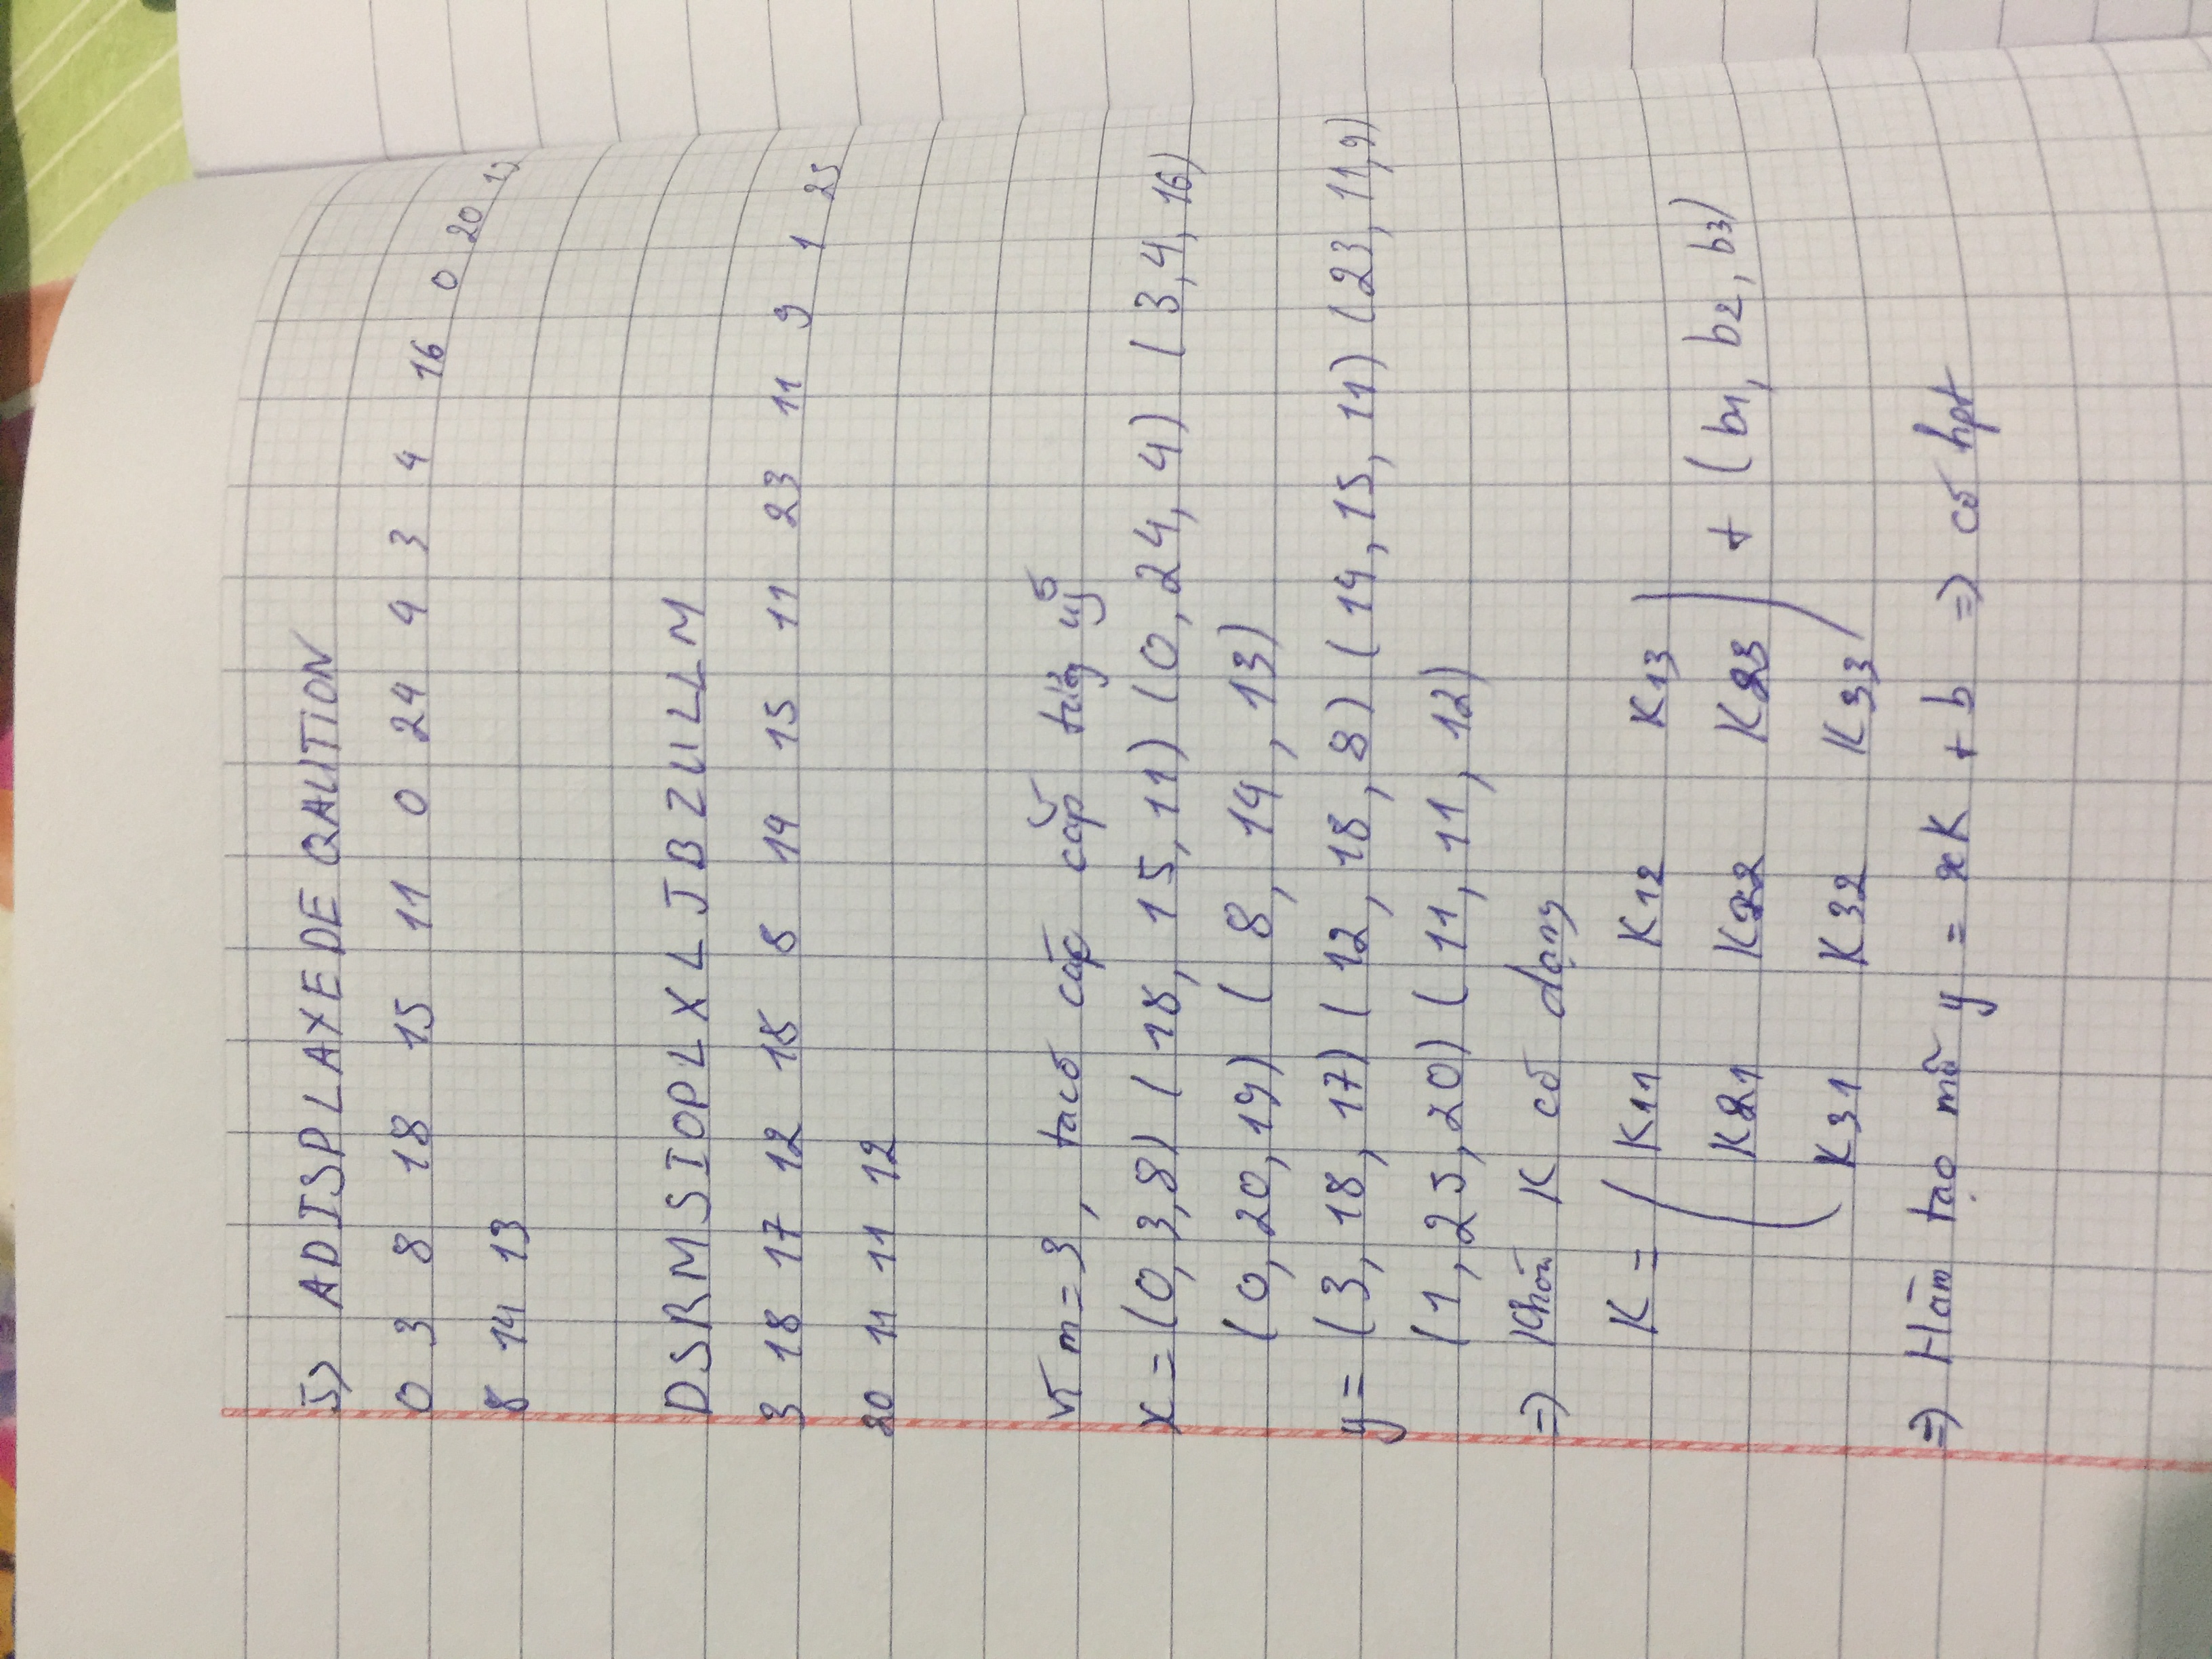 5) ADISPLAYEDEQAUTiON
0 3 8 18 15 11 0 24 4 3 4 16 0 20 19
8 14 13
DSRMSIOPLXLJBZULLM
3 18 17 12 18 8 14 15 11 23 11 9 1 25
20 11 11 12
Vì m=3, ta có các cặp tương ứng
x = (0, 3, 8) (18, 15, 11) (0, 24, 4) (3, 4, 16)
(0, 20, 19) (8, 14, 13)
y = (3, 18, 17) (12, 18, 8) (14, 15, 11) (23, 11, 9)
(1, 25, 20) (11, 11, 12)
=) Khoá K có dạng
K = ( K11 K12 K13
K21 K22 K23 ) + (b1, b2, b3)
K31 K32 K33
=) Hàm tạo mã y = xK + b =) có hpt